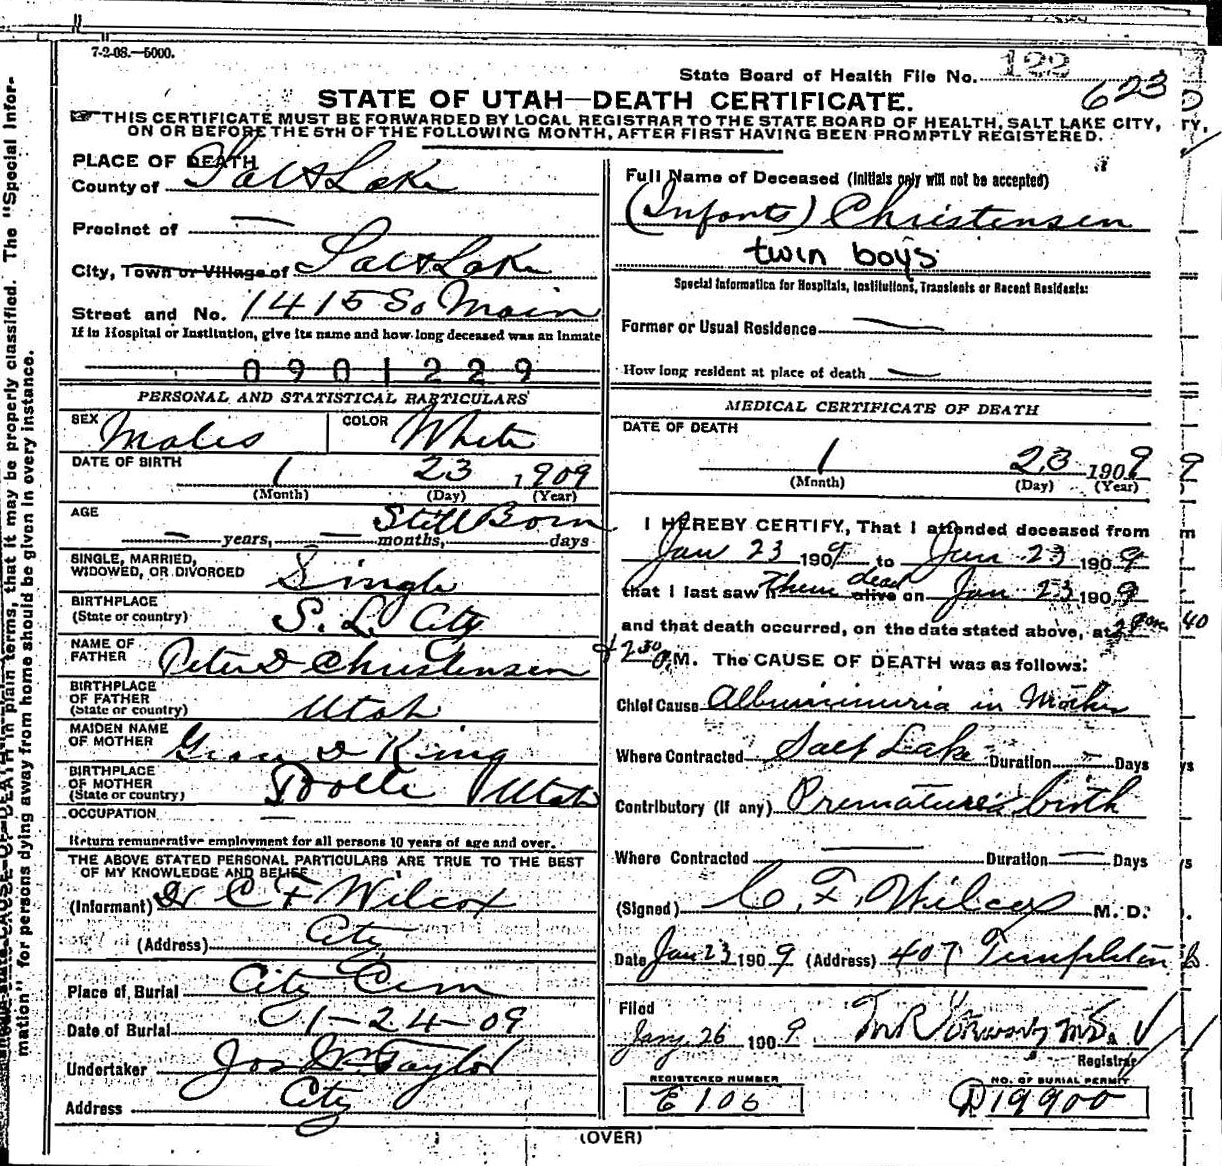 7-2-08.—5000.
State Board of Health File No. 122
623
STATE OF UTAH—DEATH CERTIFICATE.
THIS CERTIFICATE MUST BE FORWARDED BY LOCAL REGISTRAR TO THE STATE BOARD OF HEALTH, SALT LAKE CITY,
ON OR BEFORE THE 5TH OF THE FOLLOWING MONTH, AFTER FIRST HAVING BEEN PROMPTLY REGISTERED.
PLACE OF DEATH
County of Salt Lake
Precinct of —
City, Town or Village of Salt Lake
Street and No. 1415 So Main
If in Hospital or Institution, give its name and how long deceased was an inmate
0901229
PERSONAL AND STATISTICAL PARTICULARS
SEX Males COLOR White
DATE OF BIRTH 1 23 1909
(Month) (Day) (Year)
AGE Still Born
— years, — months, days
SINGLE, MARRIED,
WIDOWED, OR DIVORCED Single
BIRTHPLACE
(State or country) S. L. City
NAME OF
FATHER Peter D Christensen
BIRTHPLACE
OF FATHER
(State or country) Utah
MAIDEN NAME
OF MOTHER D King
BIRTHPLACE
OF MOTHER
(State or country) Tooele Utah
OCCUPATION —
Return remunerative employment for all persons 10 years of age and over.
THE ABOVE STATED PERSONAL PARTICULARS ARE TRUE TO THE BEST
OF MY KNOWLEDGE AND BELIEF
(Informant) Dr C F Wilcox
(Address) City
Place of Burial City Cem
Date of Burial 1-24-09
Undertaker Jos Wm Taylor
Address City
Full Name of Deceased (Initials only will not be accepted)
(Infants) Christensen
twin boys
Special Information for Hospitals, Institutions, Transients or Recent Residents:
Former or Usual Residence —
How long resident at place of death —
MEDICAL CERTIFICATE OF DEATH
DATE OF DEATH
1 23 1909
(Month) (Day) (Year)
I HEREBY CERTIFY, That I attended deceased from
Jan 23 1909 to Jan 23 1909
that I last saw them dead alive on Jan 23 1909
and that death occurred, on the date stated above, at 2
& 2 30 P.M. The CAUSE OF DEATH was as follows:
Chief Cause Albuminuria in Mother
Where Contracted Salt Lake Duration — Days
Contributory (If any) Premature birth
Where Contracted — Duration — Days
(Signed) C. F. Wilcox M. D.
Date Jan 23 1909 (Address) 407 Templeton
Filed
Jany 26 1909 M.D.
Registrar
REGISTERED NUMBER
E 106
NO. OF BURIAL PERMIT
D19900
(OVER)
The "Special Infor-
mation" for persons dying away from home should be given in every instance.
CAUSE OF DEATH in plain terms, that it may be properly classified.